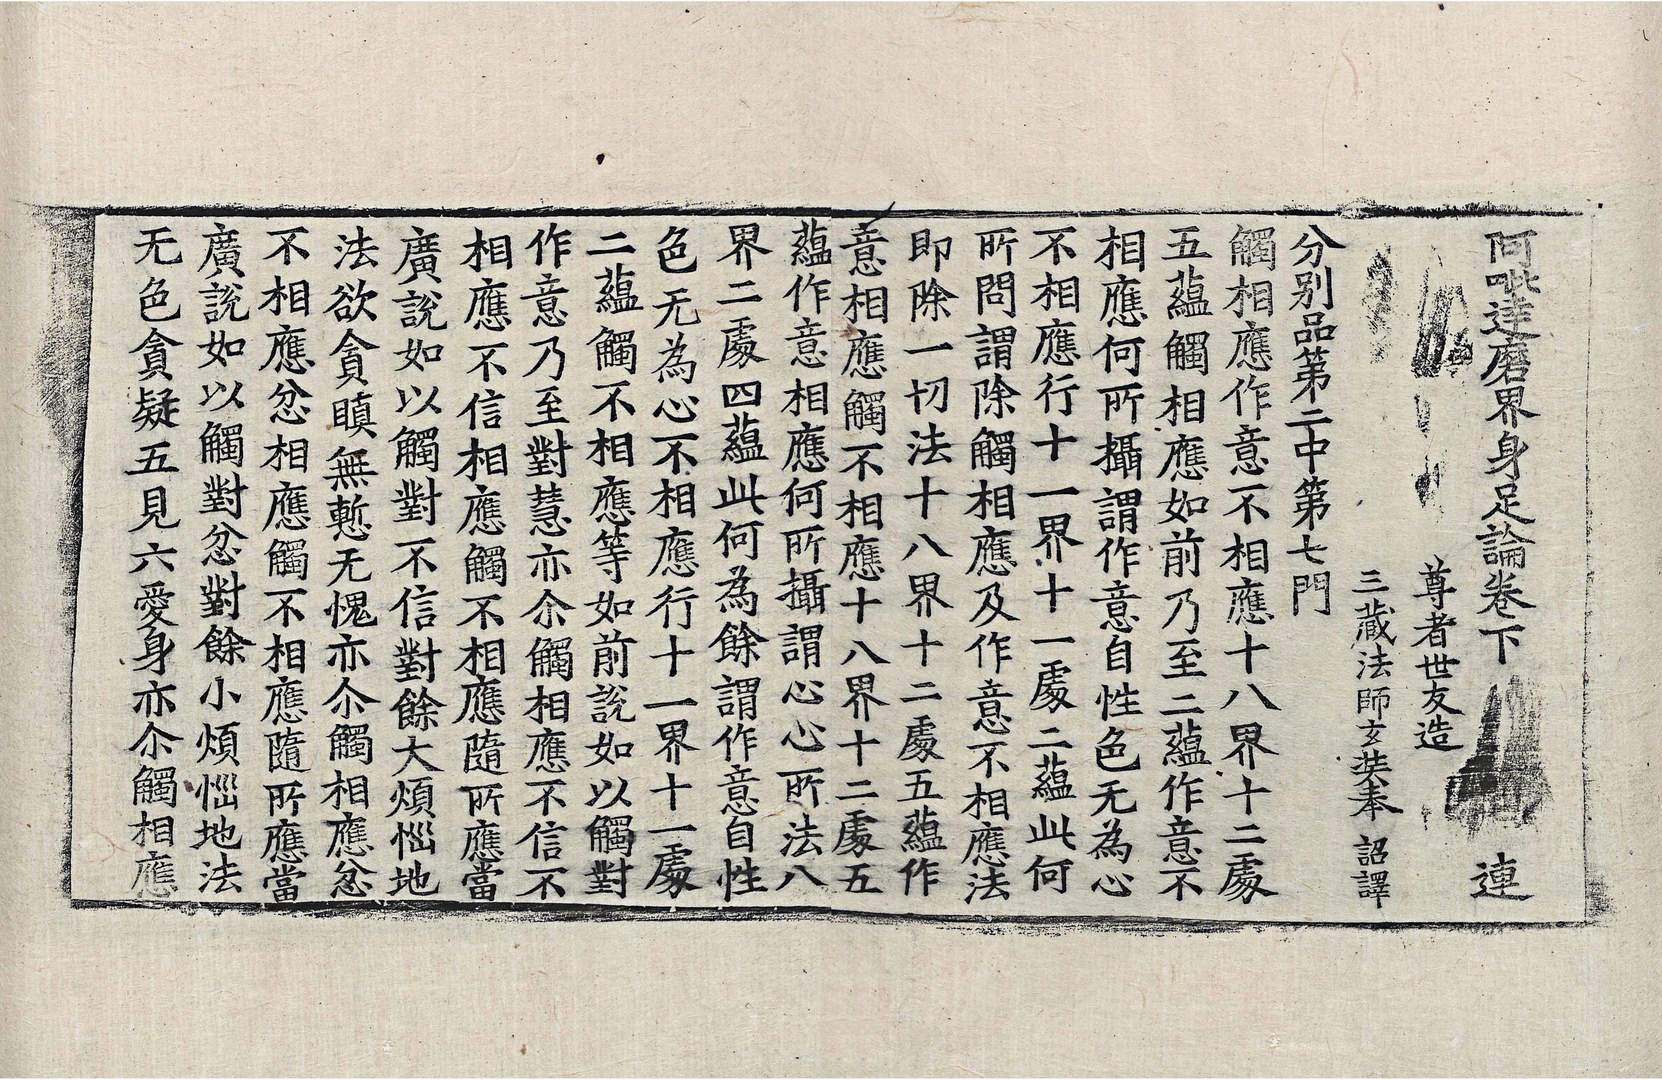 阿毗達磨界身足論卷下 連
尊者世友造
三藏法師玄奘奉 詔譯
分別品第二中第七門
觸相應作意不相應十八界十二處
五蘊觸相應如前乃至二蘊作意不
相應何所攝謂作意自性色无為心
不相應行十一界十一處二蘊此何
所問謂除觸相應及作意不相應法
即除一切法十八界十二處五蘊作
意相應觸不相應十八界十二處五
蘊作意相應何所攝謂心心所法八
界二處四蘊此何為餘謂作意自性
色无為心不相應行十一界十一處
二蘊觸不相應等如前說如以觸對
作意乃至對慧亦尒觸相應不信不
相應不信相應觸不相應隨所應當
廣說如以觸對不信對餘大煩惱地
法欲貪瞋無慙无愧亦尒觸相應忿
不相應忿相應觸不相應隨所應當
廣說如以觸對忿對餘小煩惱地法
无色貪疑五見六愛身亦尒觸相應